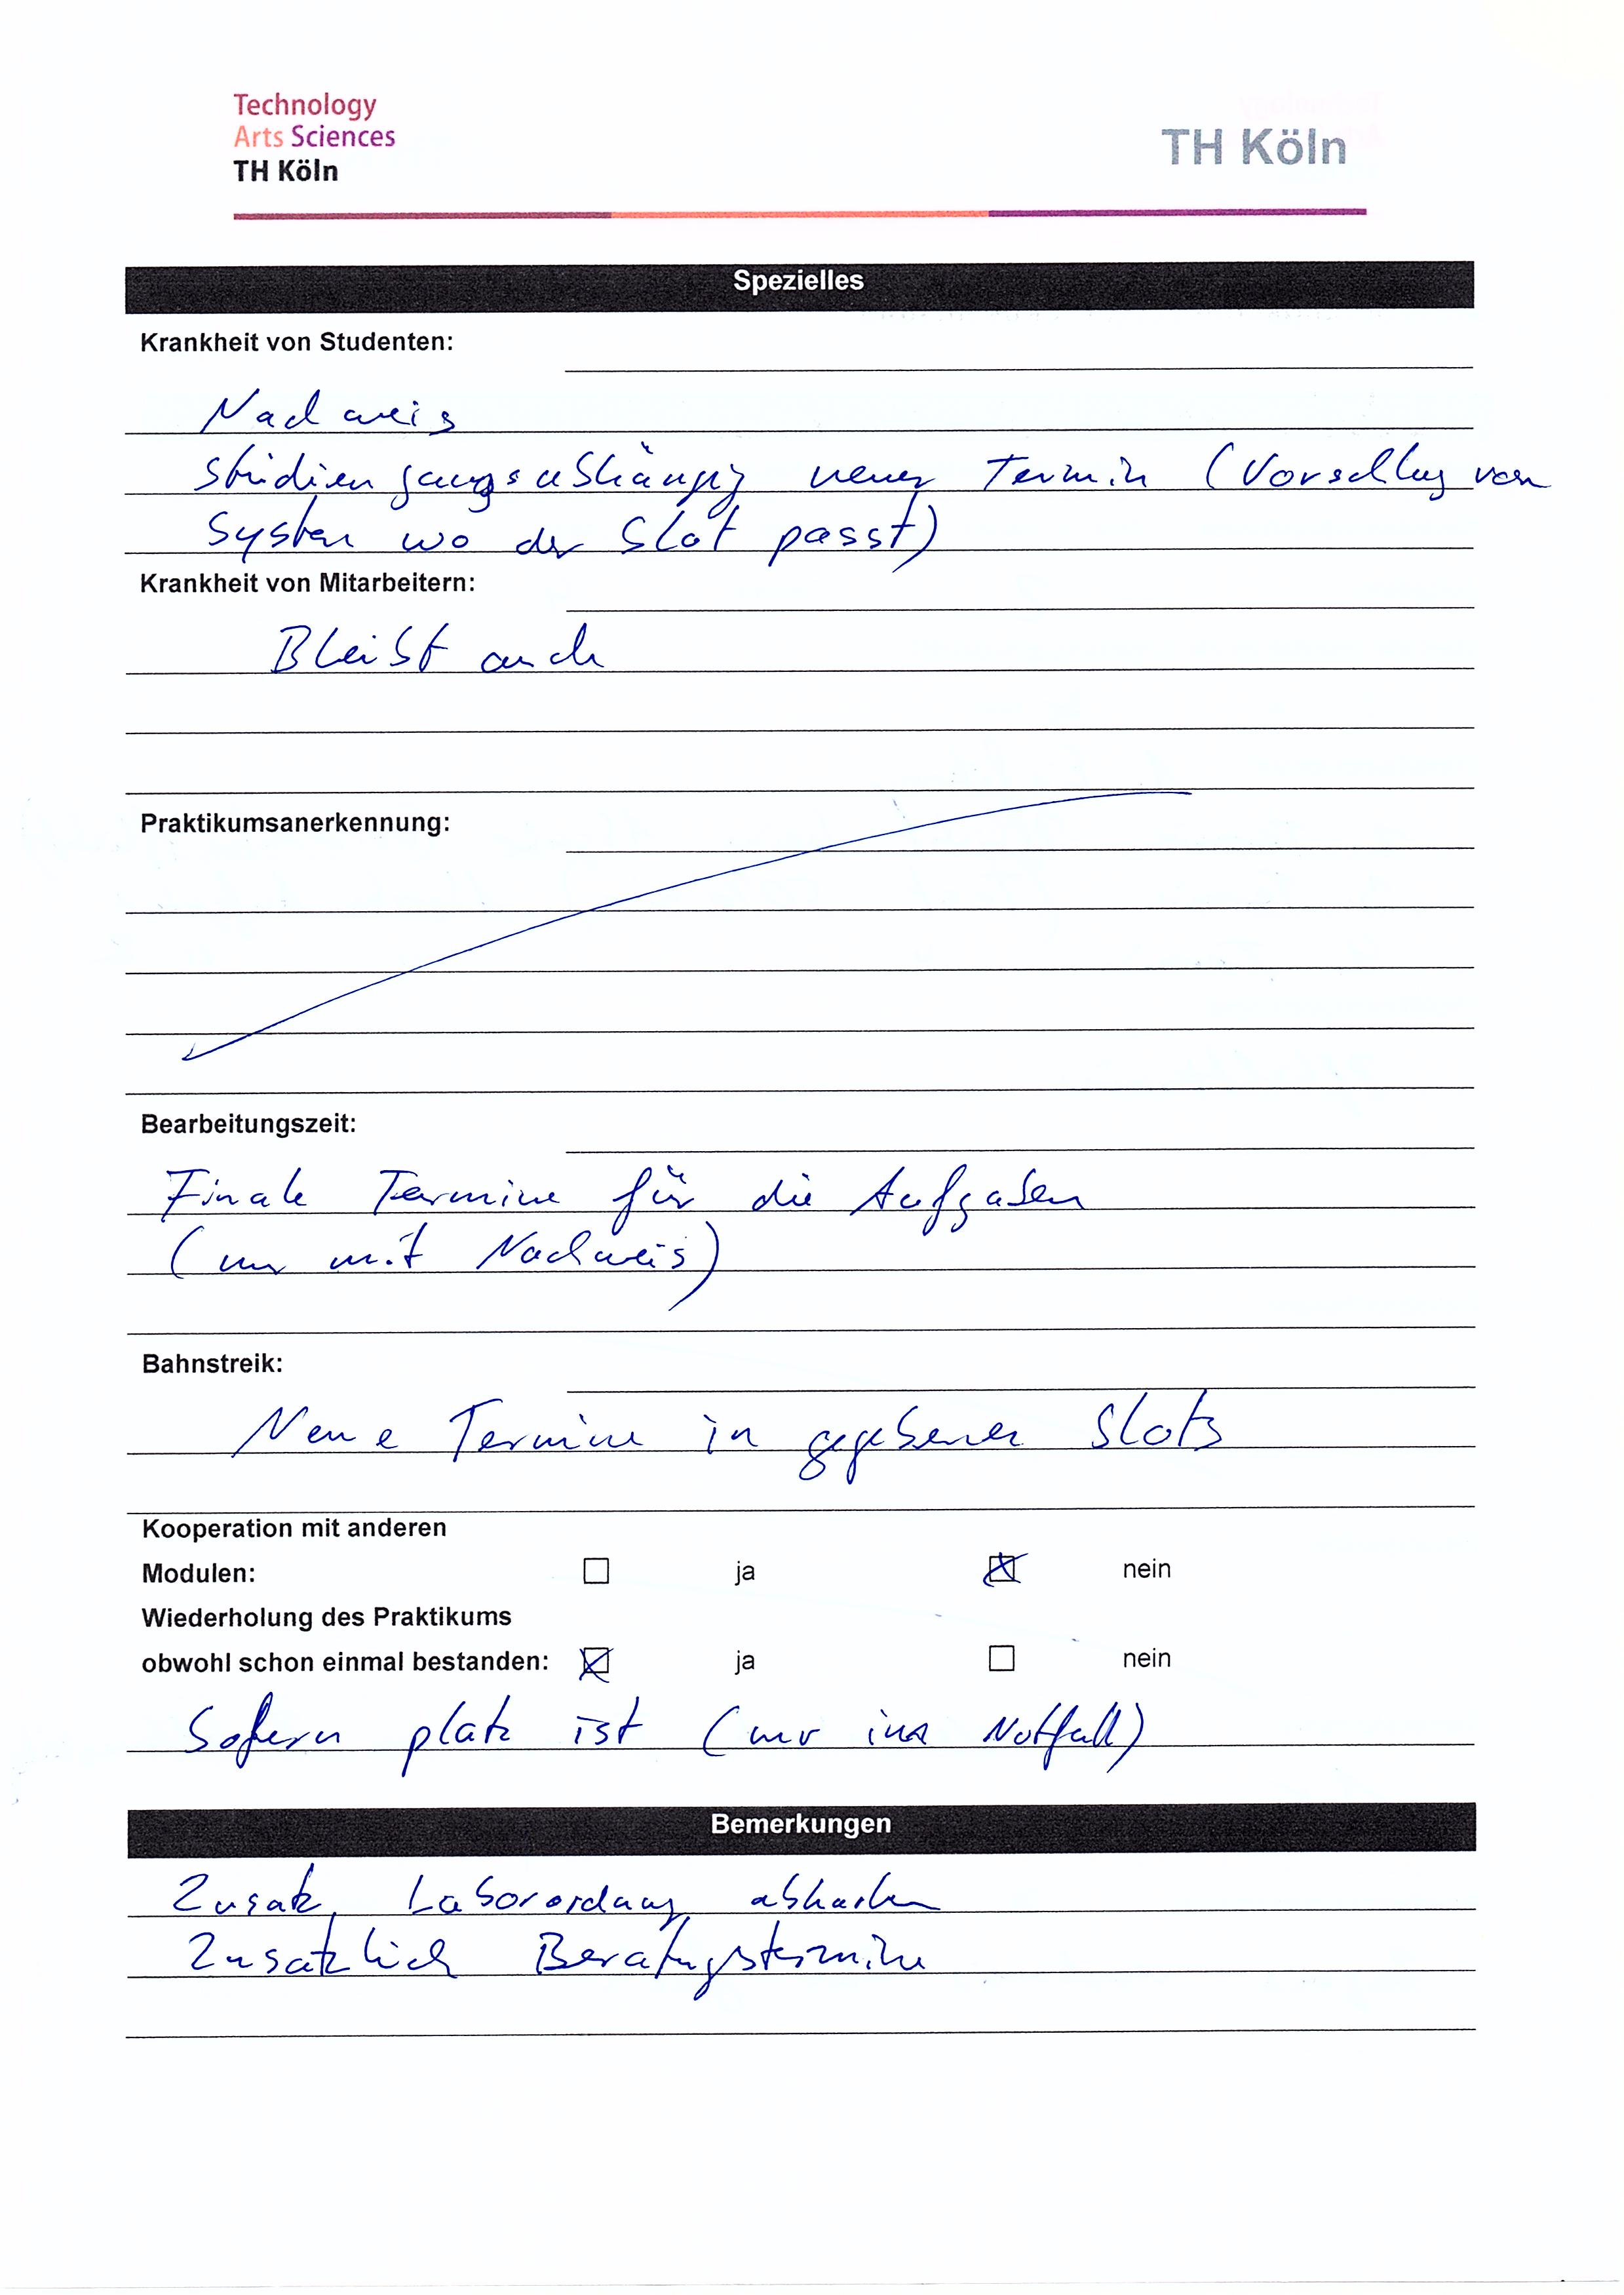 Technology
Arts Sciences
TH Köln
TH Köln
Spezielles
Krankheit von Studenten:
Nachweis
studiengangsabhängig neuer Termin (Vorschlag von
System wo der Slot passt)
Krankheit von Mitarbeitern:
Bleibt auch
Praktikumsanerkennung:
Bearbeitungszeit:
Finale Termine für die Aufgaben
(nur mit Nachweis)
Bahnstreik:
Neue Termine in gegebenen Slots
Kooperation mit anderen
Modulen: ja nein
Wiederholung des Praktikums
obwohl schon einmal bestanden: ja nein
Sofern platz ist (nur im Notfall)
Bemerkungen
Zusatz, Laborordnung abhaken
Zusatzlich Beratungstermine